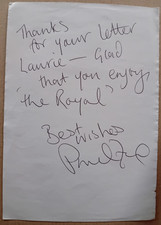 Thanks
for your letter
Laurie — Glad
that you enjoy
'the Royal'
Best
wishes